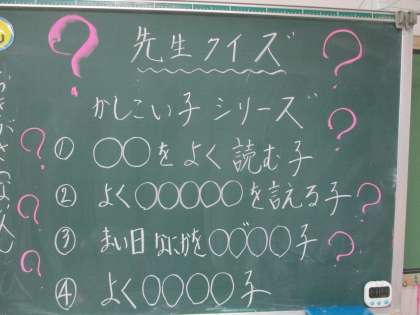 先生クイズ
かしこい子シリーズ
① ○○をよく読む子
② よく○○○○○を言える子
③ まい日なにかを○○゛○○○子
④ よく○○○○子